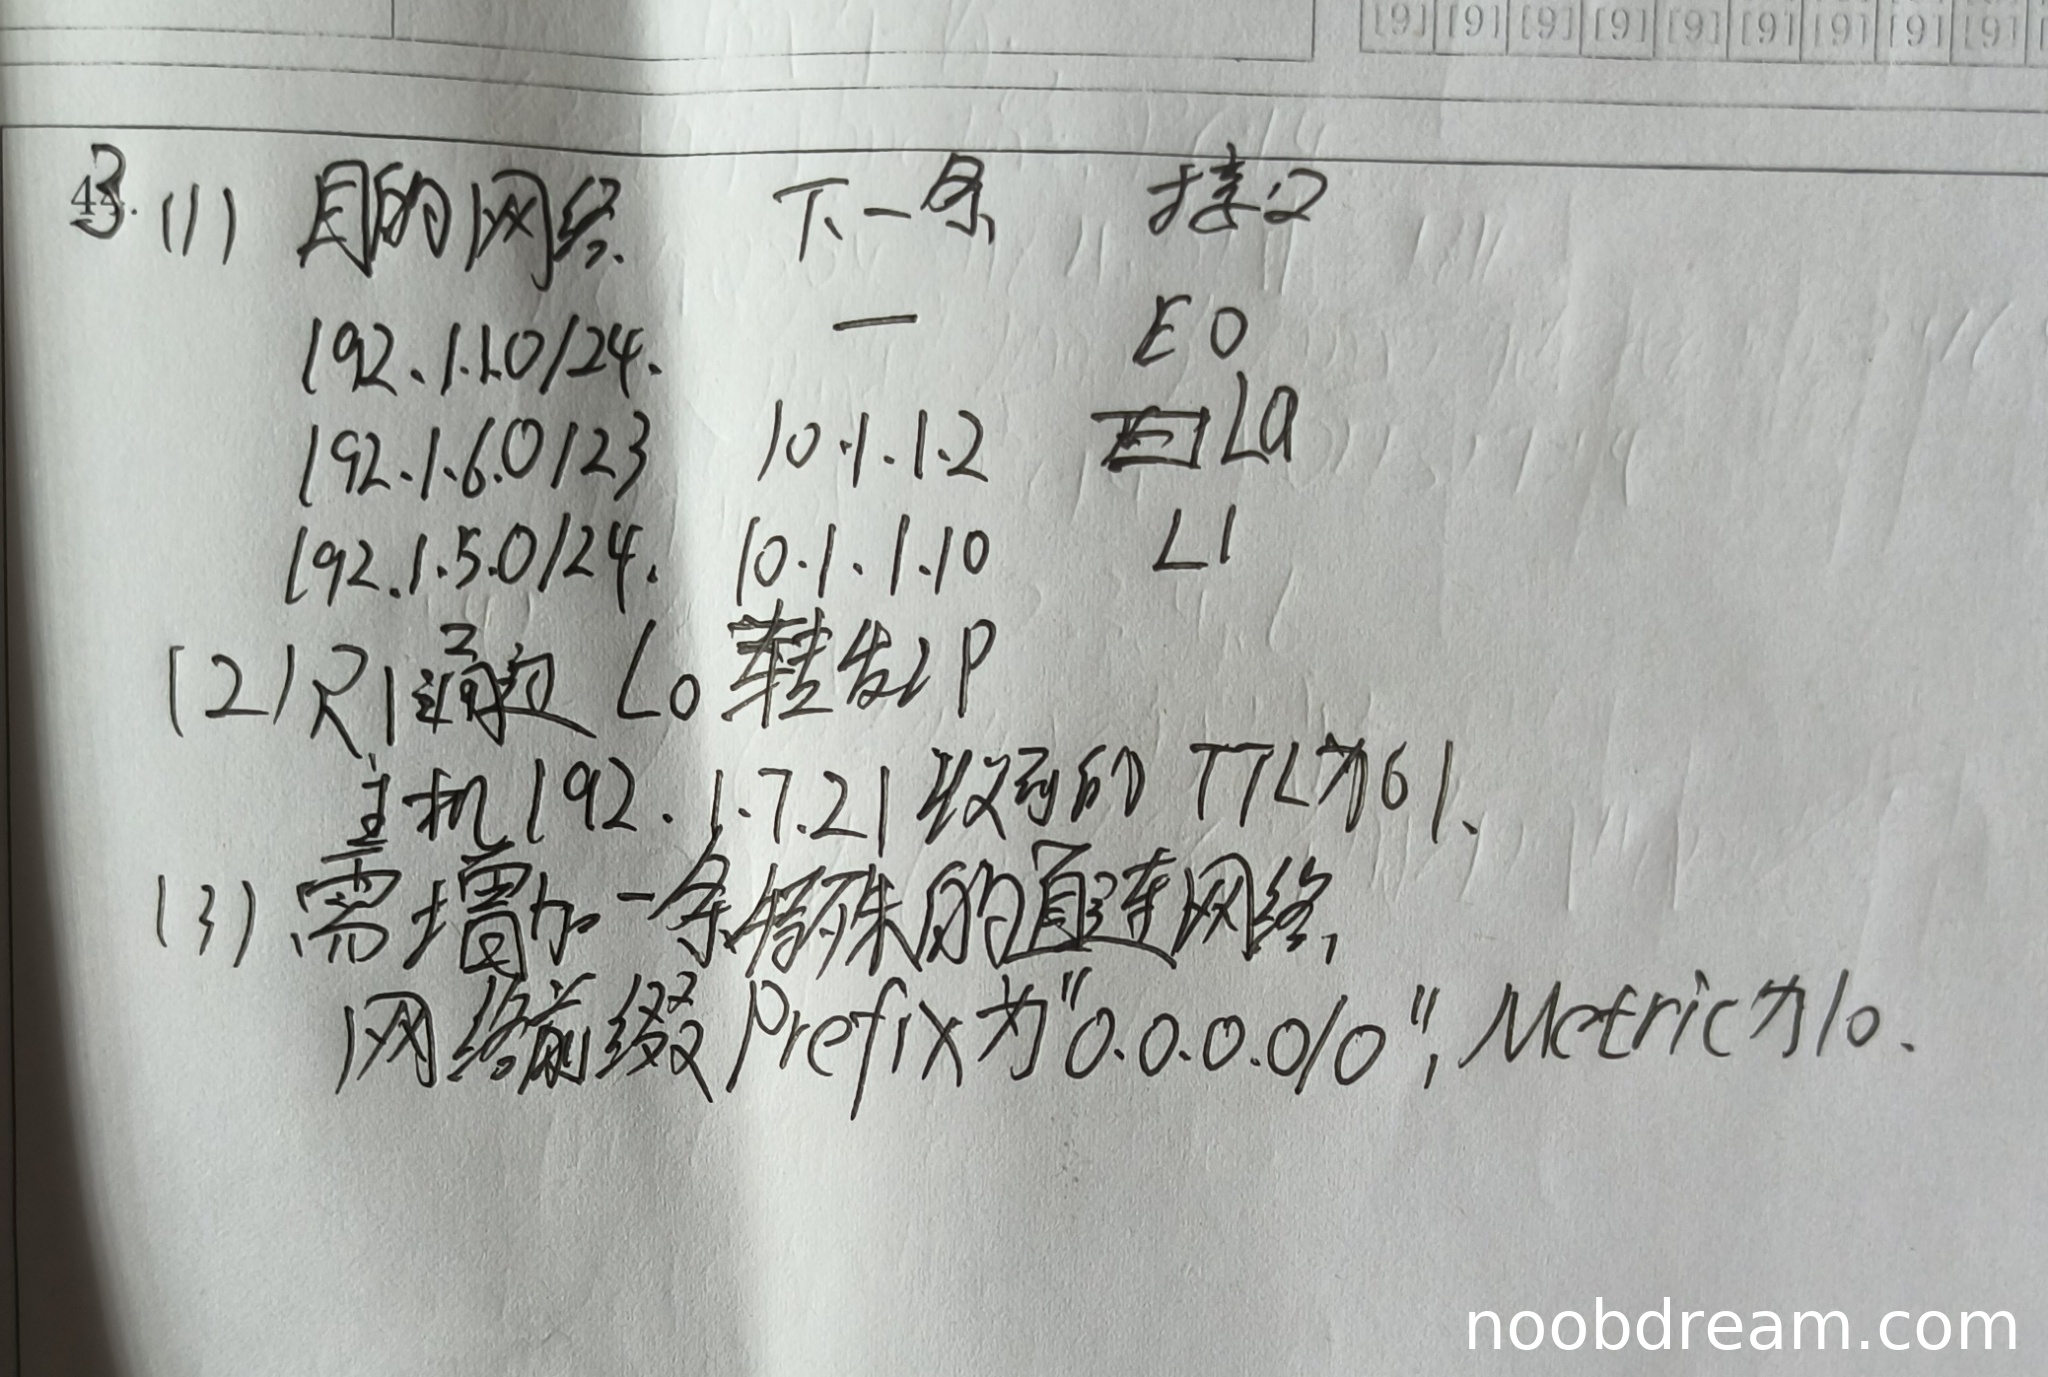 [9] [9] [9] [9] [9] [9] [9] [9] [9]
43. (1) 目的网络 下一条 接口
192.1.1.0/24. — E0
192.1.6.0/23 10.1.1.2 L0
192.1.5.0/24. 10.1.1.10 L1
(2) R1通过 L0 转发IP
主机192.1.7.21收到的TTL为61.
(3) 需增加一条特殊的直连网络,
网络前缀Prefix为"0.0.0.0/0", Metric为10.
noobdream.com